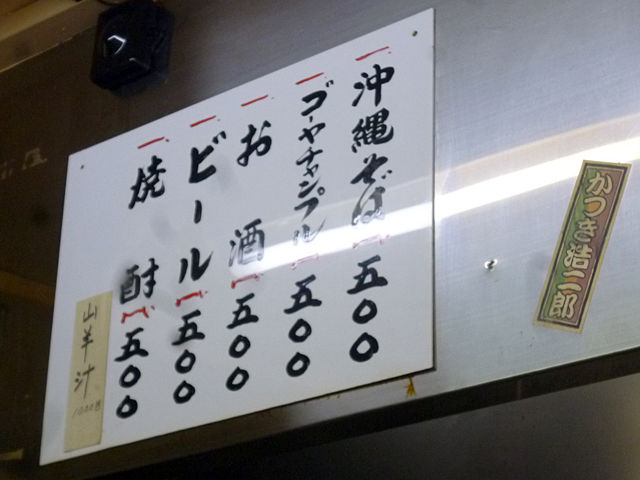 一、沖縄そば 五〇〇
一、ゴーヤチャンプル 五〇〇
一、お酒 五〇〇
一、ビール 五〇〇
一、焼酎 五〇〇
山羊汁
かつき浩二郎